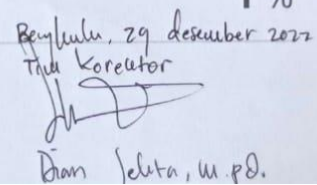 Bengkulu, 29 desember 2022
Tim Korektor
Dian Jelita, M.Pd.